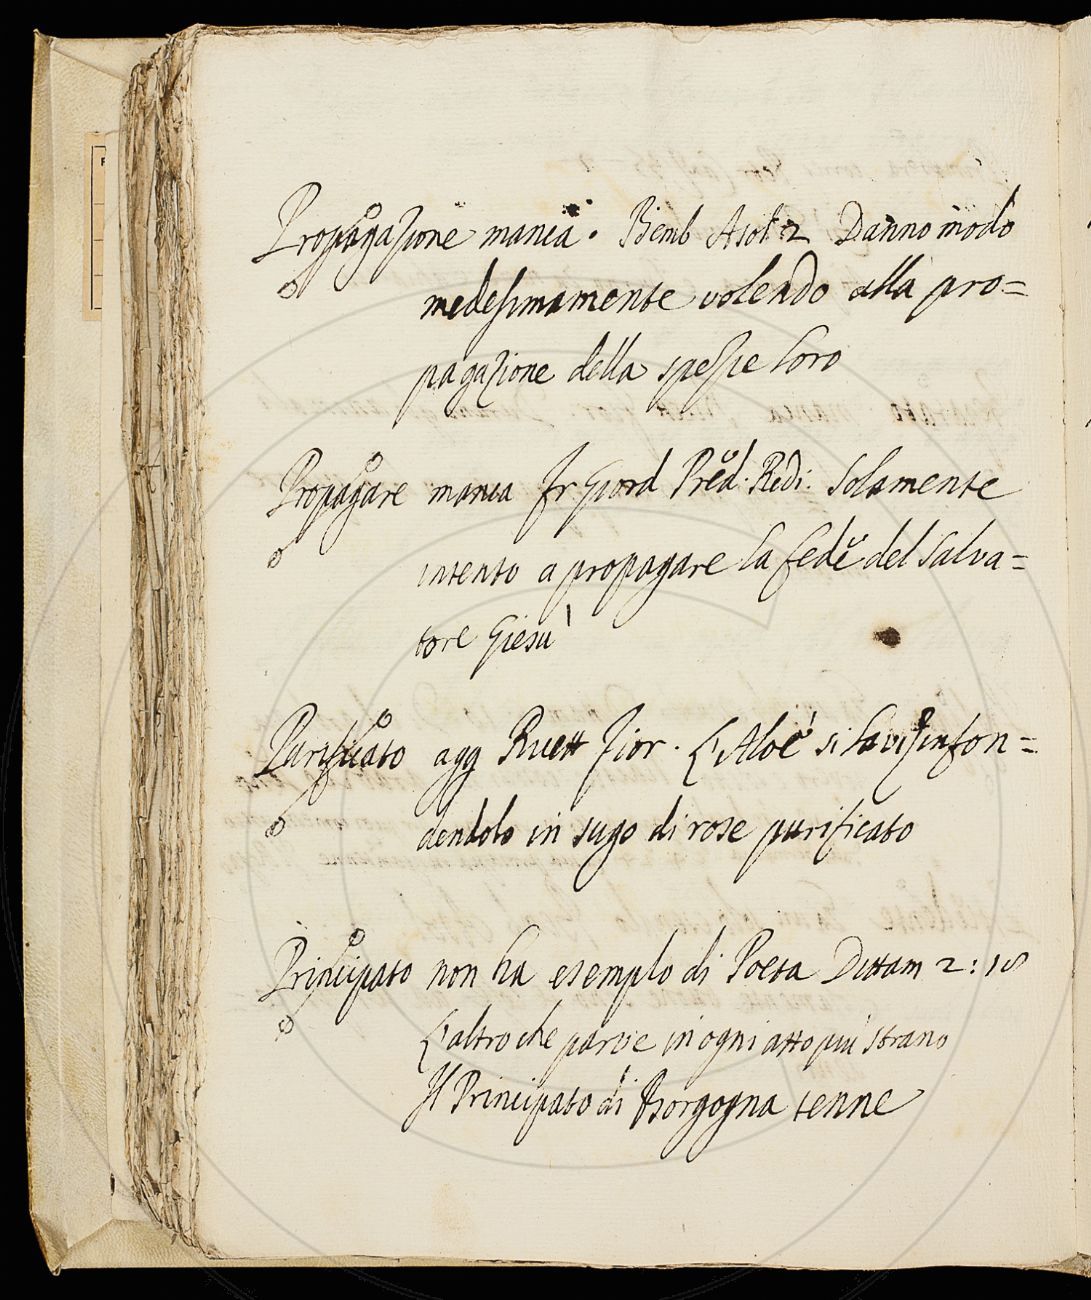 Propagazione manca. Bemb Asol 2 Danno modo
medesimamente volendo alla pro=
pagazione della spezie loro
Propagare manca Fr Giord Pred. Redi. Solamente
intento a propagare la fede del Salva=
tore Giesù
Purificato agg Ricett Fior. L'Aloè si lavi infon=
dendolo in sugo di rose purificato
Principato non ha esemplo di Poeta Dittam 2:18
L'altro che parve in ogni atto più strano
Il Principato di Borgogna tenne